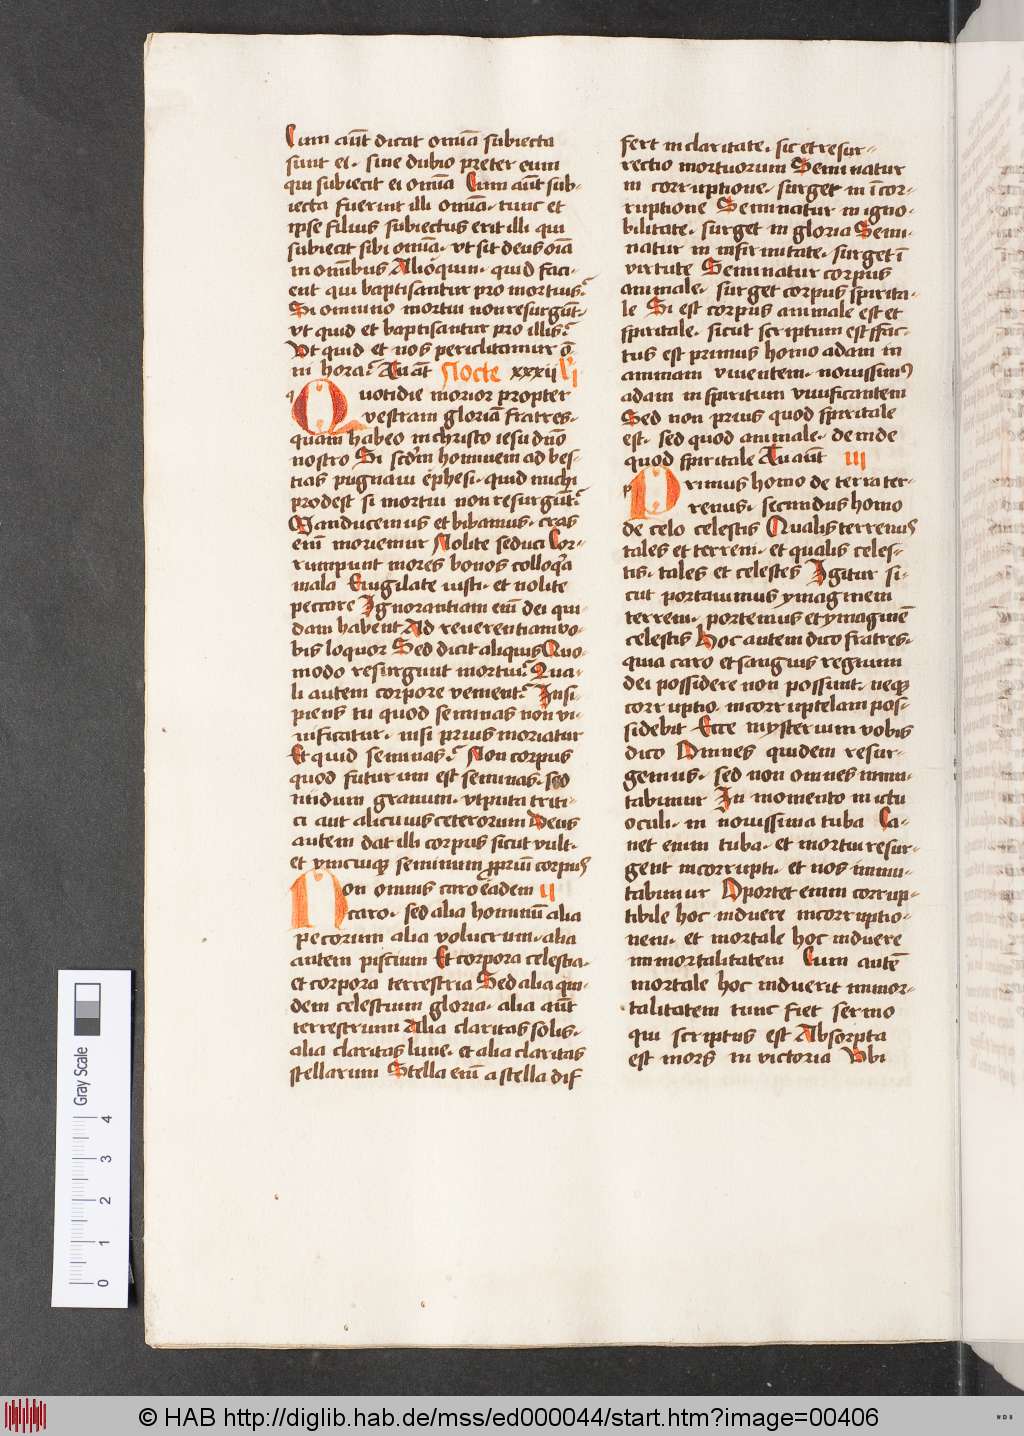 Cum aūt dicat om̄ia subiecta
sunt ei· sine dubio preter eum
qui subiecit ei om̄ia Cum aūt sub-
iecta fuerint illi om̄ia· tunc et
ipse filius subiectus erit illi qui
subiecit sibi om̄ia· vt sit deus oīa
in om̄ibus Alioquin· quid faci-
ent qui baptisantur pro mortuis?
Si omnino mortui non resurgūt·
vt quid et baptisantur pro illis?
Vt quid et nos periclitamur ō-
ni hora? Tu aūt Nocte xxxii Lī
Quotidie morior propter
vestram gloriā fratres·
quam habeo in christo iesu dn̄o
nostro Si scd̄m hominem ad bes-
tias pugnaui ephesi· quid michi
prodest si mortui non resurgūt?
Manducemus et bibamus· cras
enī moriemur Nolite seduci Cor-
rumpunt mores bonos colloq̄a
mala Euigilate iusti· et nolite
peccare Ignorantiam enī dei qui-
dam habent Ad reuerentiam vo-
bis loquor Sed dicit aliquis Quo-
modo resurgunt mortui? Qua-
li autem corpore venient? Insi-
piens tu quod seminas non vi-
uificatur· nisi prius moriatur
Et quid seminas? Non corpus
quod futurum est seminas· sed
nudum granum· vtputa triti-
ci aut alicuius ceterorum Deus
autem dat illi corpus sicut vult·
et vnicuiqꝫ seminum ꝓpriū corpus
Non omnis caro eadem II
caro· sed alia hominū alia
pecorum alia volucrum· alia
autem piscium Et corpora celestia·
et corpora terrestria Sed alia qui-
dem celestium gloria· alia aūt
terrestrium Alia claritas solis·
alia claritas lune· et alia claritas
stellarum Stella enī a stella dif
fert in claritate· sic et resur-
rectio mortuorum Seminatur
in corruptione· surget in īcor-
ruptione Seminatur in igno-
bilitate· surget in gloria Semi-
natur in infirmitate· surget ī
virtute Seminatur corpus
animale· surget corpus spirita-
le Si est corpus animale est et
spiritale· sicut scriptum est ffac-
tus est primus homo adam in
animam viuentem· nouissimꝰ
adam in spiritum viuificantem
Sed non prius quod spiritale
est· sed quod animale· deinde
quod spiritale Tu aūt III
Primus homo de terra ter-
renus· secundus homo
de celo celestis Qualis terrenus
tales et terreni· et qualis celes-
tis· tales et celestes Igitur si-
cut portauimus ymaginem
terreni· portemus et ymaginē
celestis Hoc autem dico fratres·
quia caro et sanguis regnum
dei possidere non possunt· neqꝫ
corruptio incorruptelam pos-
sidebit Ecce mysterium vobis
dico Omnes quidem resur-
gemus· sed non omnes immu-
tabimur In momento in ictu
oculi· in nouissima tuba Ca-
net enim tuba· et mortui resur-
gent incorrupti· et nos immu-
tabimur Oportet enim corrup-
tibile hoc induere incorruptio-
nem· et mortale hoc induere
immortalitatem Cum autē
mortale hoc induerit immor-
talitatem tunc fiet sermo
qui scriptus est Absorpta
est mors in victoria Vbi
Gray Scale
0 1 2 3 4
© HAB http://diglib.hab.de/mss/ed000044/start.htm?image=00406